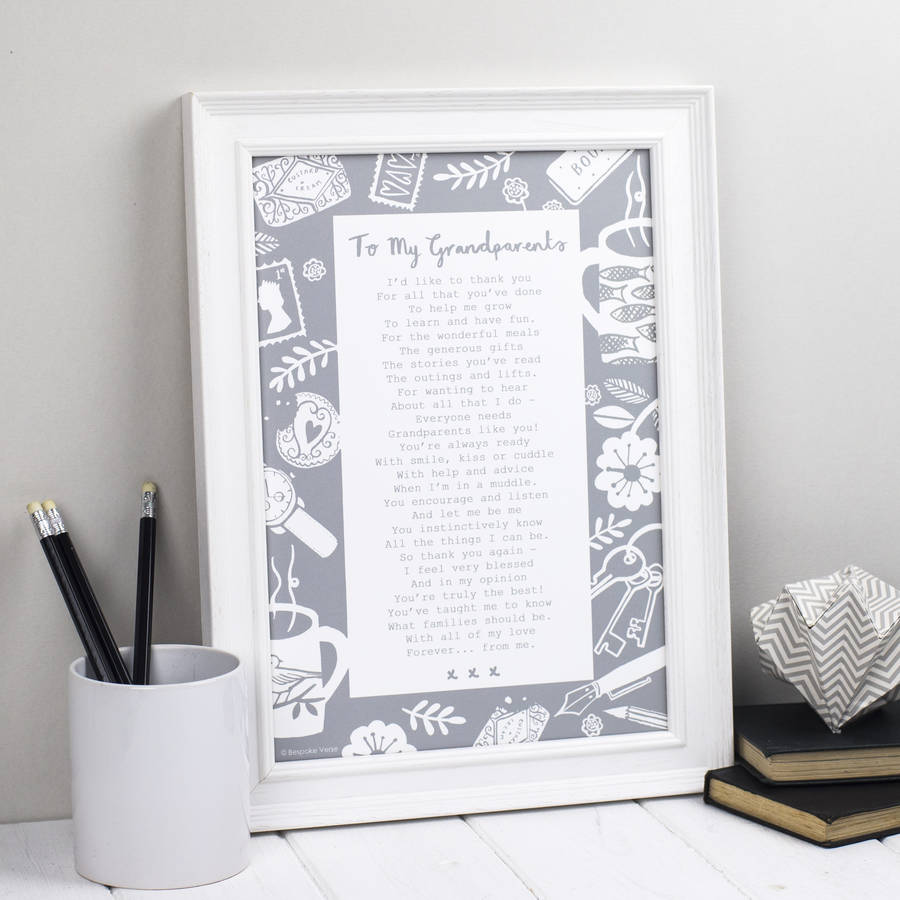 CUSTARD
CREAM
BOOK
1st
To My Grandparents
I'd like to thank you
For all that you've done
To help me grow
To learn and have fun.
For the wonderful meals
The generous gifts
The stories you've read
The outings and lifts.
For wanting to hear
About all that I do –
Everyone needs
Grandparents like you!
You're always ready
With smile, kiss or cuddle
With help and advice
When I'm in a muddle.
You encourage and listen
And let me be me
You instinctively know
All the things I can be.
So thank you again –
I feel very blessed
And in my opinion
You're truly the best!
You've taught me to know
What families should be.
With all of my love
Forever... from me.
x x x
© Bespoke Verse